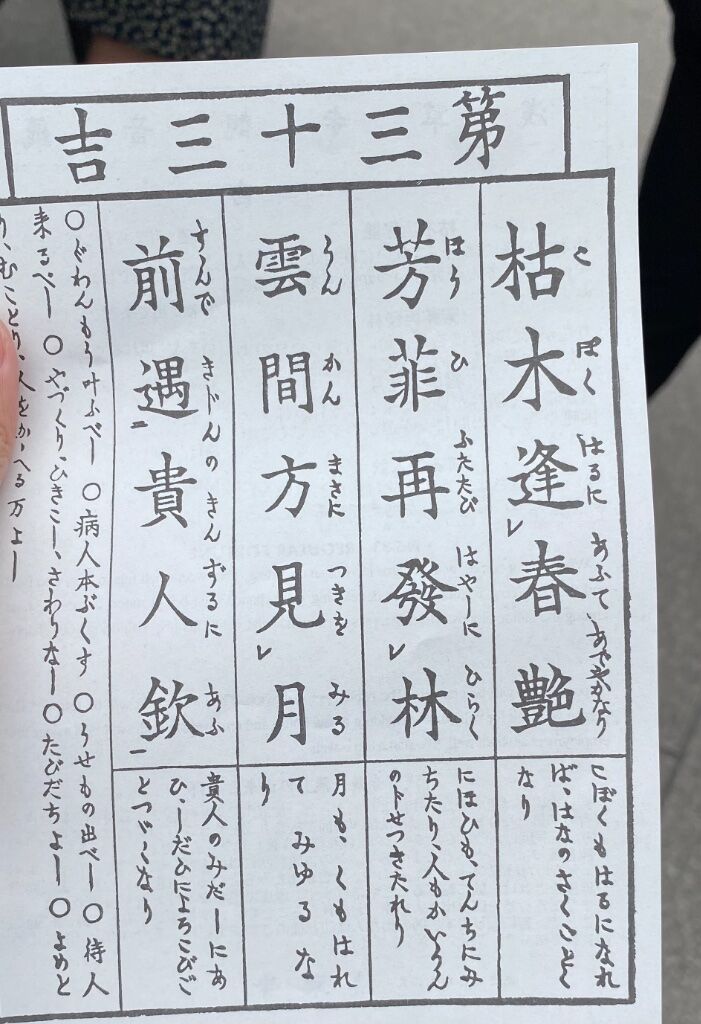 第三十三吉
枯木逢春艶
こ ぼく はるに あふて あでやかなり
芳菲再發林
はう ひ ふたたび はやしに ひらく
雲間方見月
うん かん まさに つきを みる
前遇貴人欽
すんで きじんの きんずるに あふ
こぼくもはるになれ
ば、はなのさくごとく
なり
にほひも、てんちにみ
ちたり、人もかいうん
の下せつきたれり
月も、くもはれ
て みゆるな
り
貴人のみだしにあ
ひ、しだひによろこびご
とつゞくなり
○ぐわんもう叶ふべし ○病人本ぶくす ○うせもの出べし ○待人
来るべし ○やづくり、ひきこし、さわりなし ○たびだちよし ○よめと
り、むことり、人をかゝへる万よし